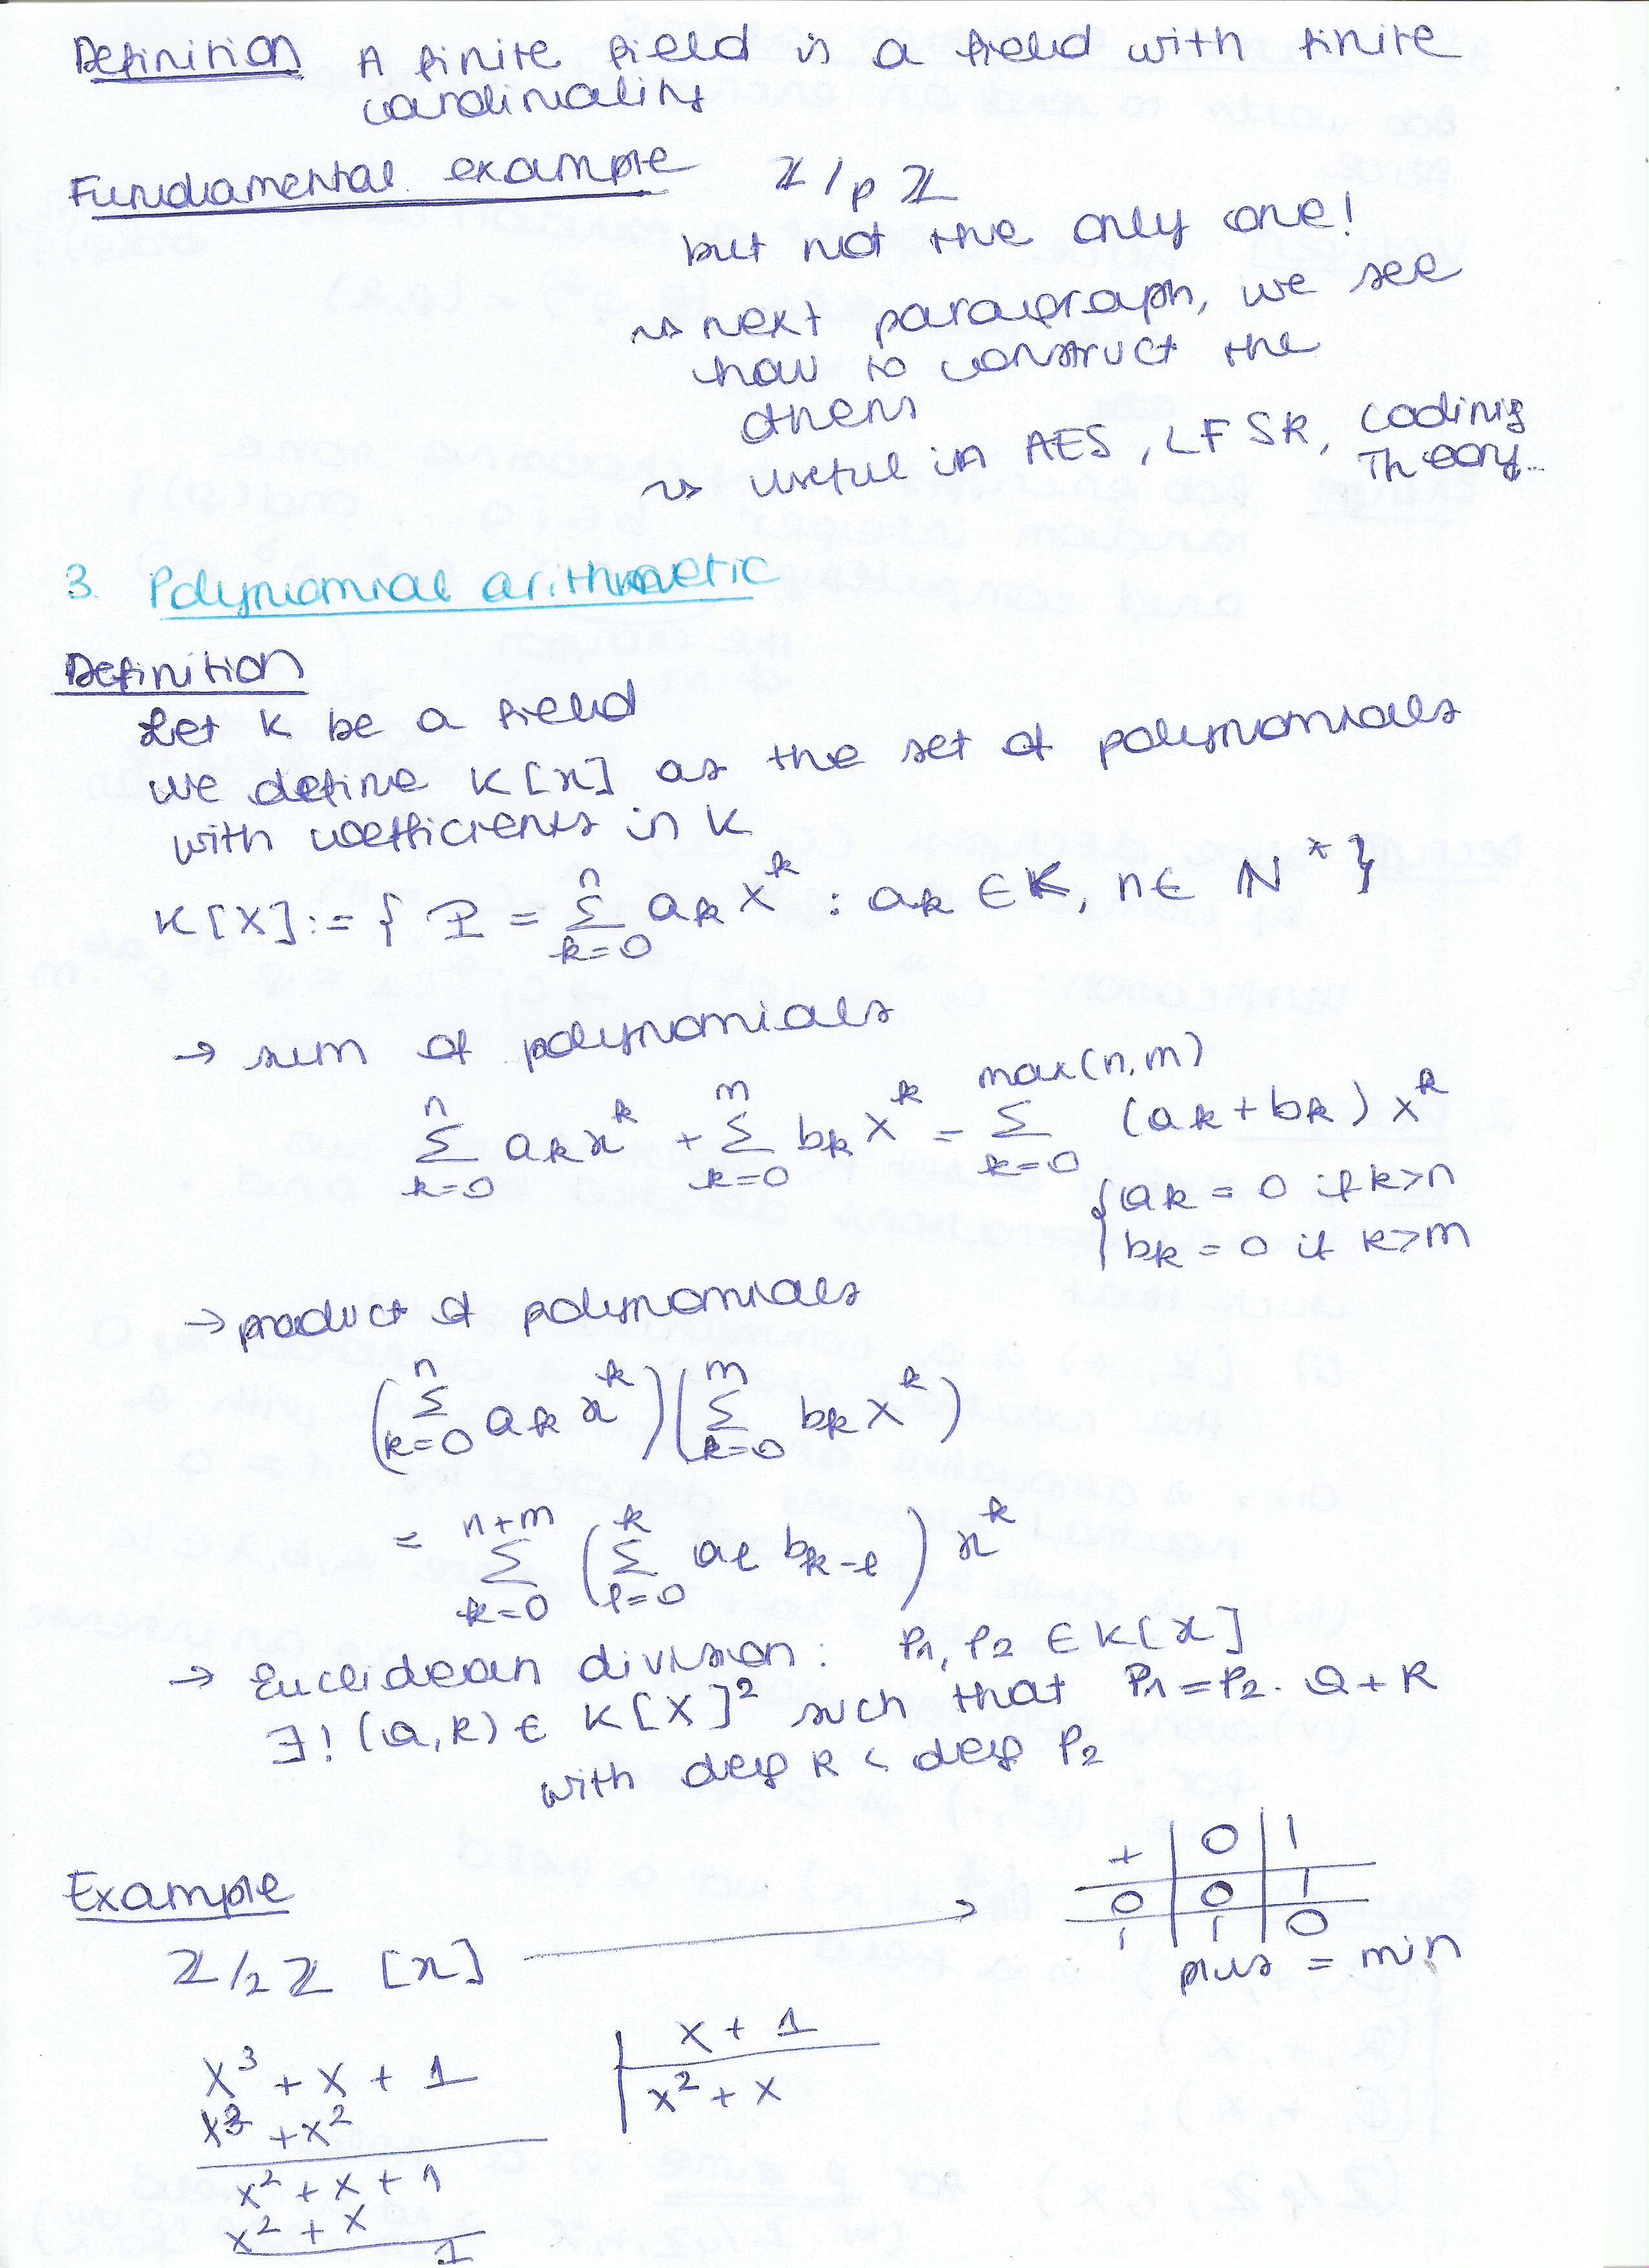 Definition A finite field is a field with finite
cardinality
Fundamental example ℤ/pℤ
but not the only one!
⇝ next paragraph, we see
how to construct the
others
⇝ useful in AES, LFSR, Coding
Theory...
3. Polynomial arithmetic
Definition
Let K be a field
we define K[x] as the set of polynomials
with coefficients in K
K[X] := { P = Σ_{k=0}^{n} a_k X^k : a_k ∈ K, n ∈ ℕ* }
→ sum of polynomials
Σ_{k=0}^{n} a_k x^k + Σ_{k=0}^{m} b_k X^k = Σ_{k=0}^{max(n,m)} (a_k + b_k) X^k
{ a_k = 0 if k>n
b_k = 0 if k>m
→ product of polynomials
(Σ_{k=0}^{n} a_k x^k)(Σ_{k=0}^{m} b_k X^k)
= Σ_{k=0}^{n+m} (Σ_{l=0}^{k} a_l b_{k-l}) x^k
→ Euclidean division : P1, P2 ∈ K[x]
∃! (Q,R) ∈ K[X]² such that P1 = P2 . Q + R
with deg R < deg P2
Example
ℤ/2ℤ [x] →
+ | 0 | 1
0 | 0 | 1
1 | 1 | 0
plus = min
X³ + X + 1 | X + 1
X³ + X² | X² + X
X² + X + 1
X² + X
1